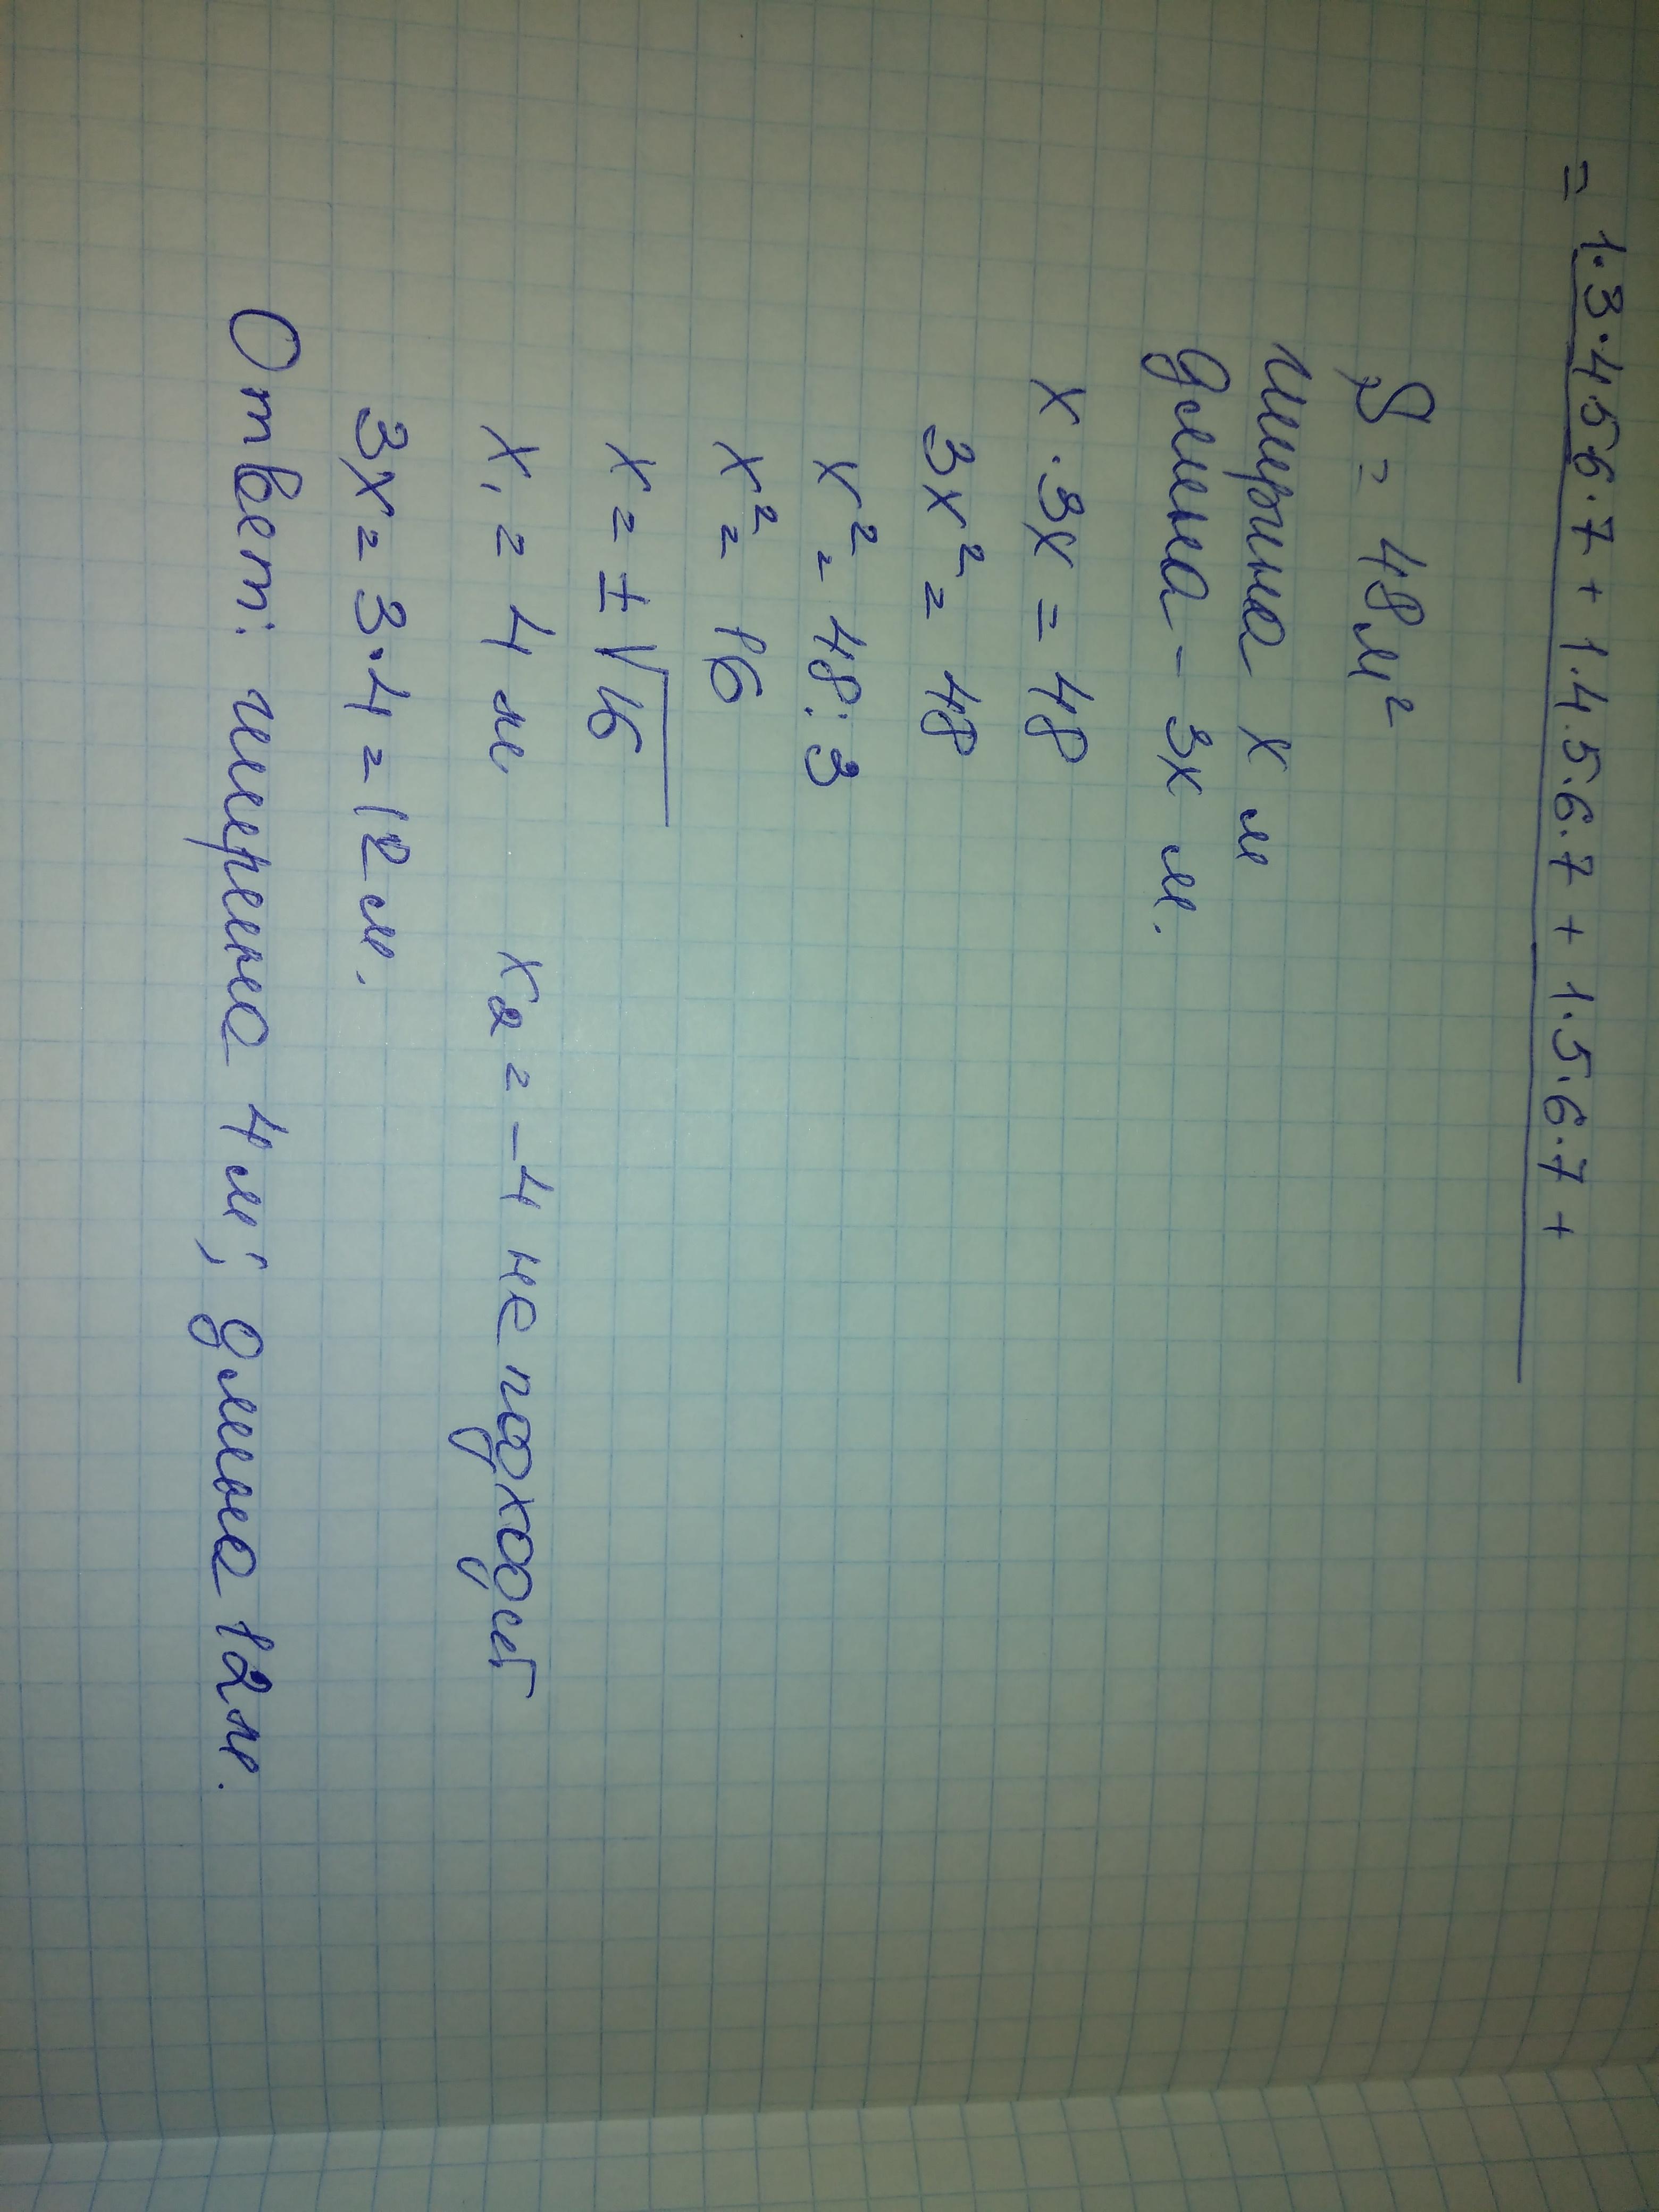 = 1·3·4·5·6·7 + 1·4·5·6·7 + 1·5·6·7 +
S = 48м²
Ширина х м
Длина - 3х м.
х · 3х = 48
3х² = 48
х² = 48 : 3
х² = 16
х = ± √16
х₁ = 4 м. х₂ = -4 не подходит
3х = 3·4 = 12 м.
Ответ: ширина 4 м; длина 12 м.